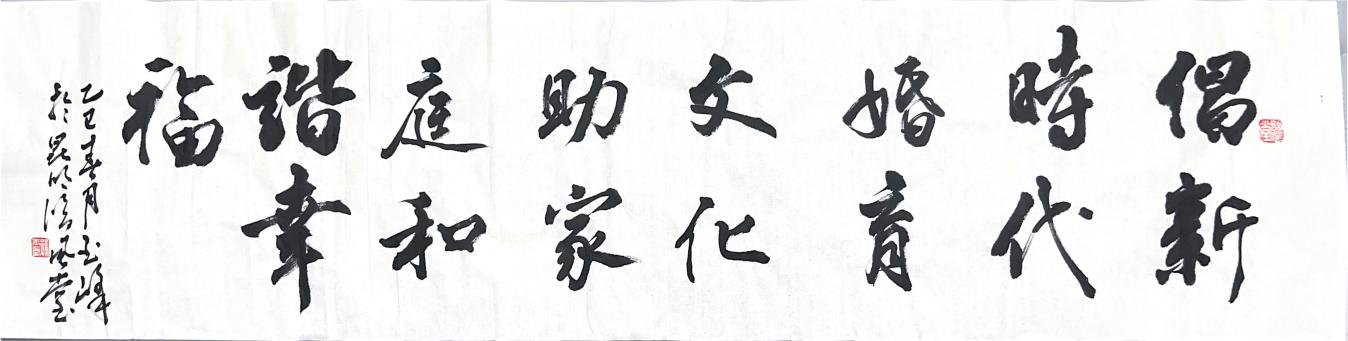 倡新
時代
婚育
文化
助家
庭和
諧幸
福
乙巳春月玉峰
於昆明清風堂